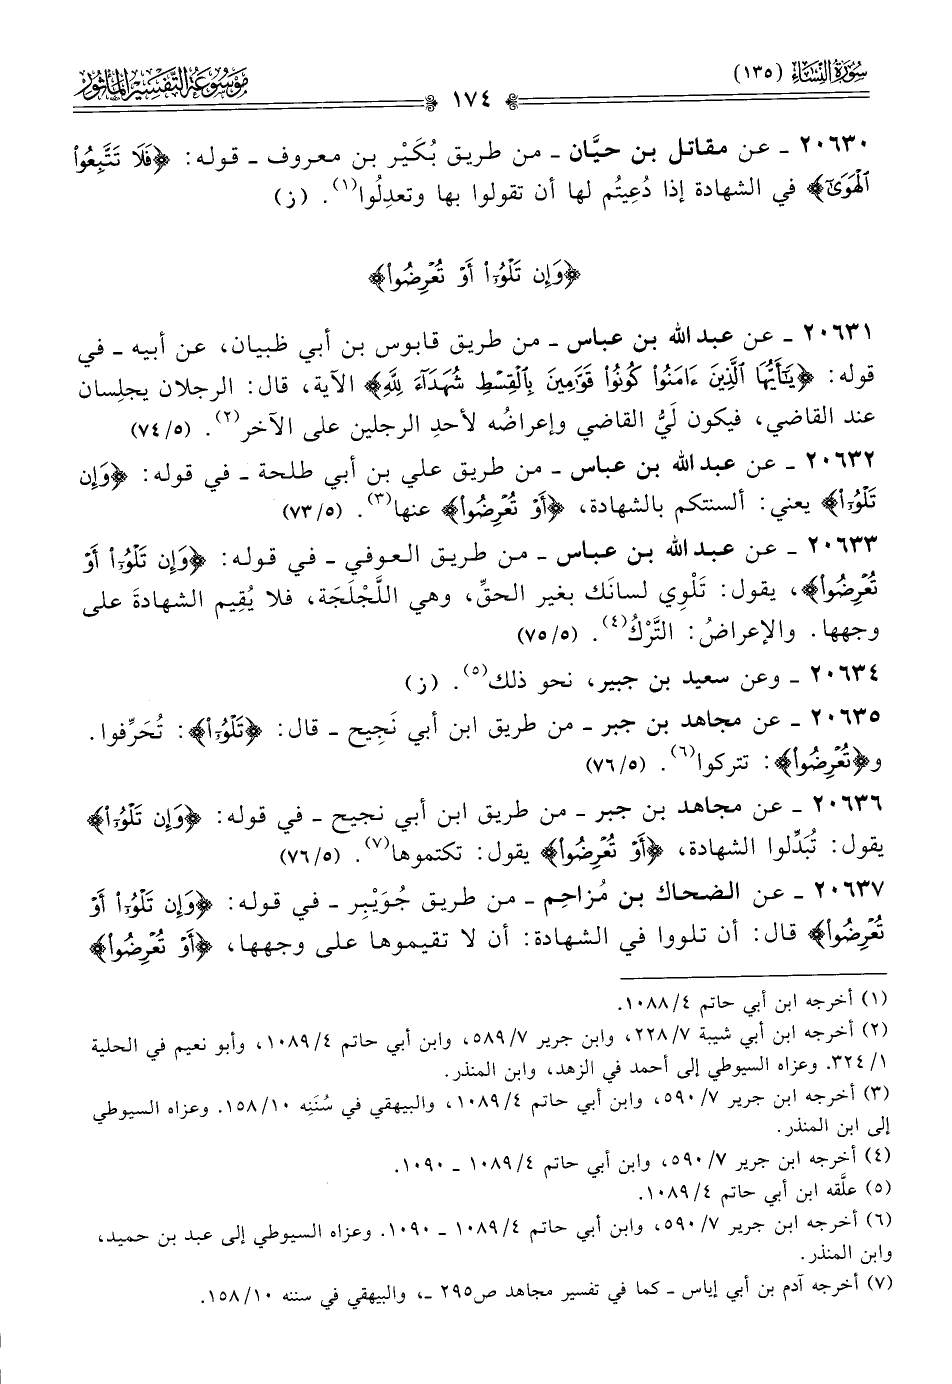 سُورَةُ النِّسَاءِ (١٣٥)
١٧٤
مَوْسُوعَة التَّفْسِير المَأْثُور
٢٠٦٣٠ ـ عن مقاتل بن حيَّان ـ من طريق بُكَيْر بن معروف ـ قوله: ﴿فَلَا تَتَّبِعُوا۟
ٱلْهَوَىٰٓ﴾ في الشهادة إذا دُعِيتُم لها أن تقولوا بها وتعدِلُوا(١). (ز)
﴿وَإِن تَلْوُۥٓا۟ أَوْ تُعْرِضُوا۟﴾
٢٠٦٣١ ـ عن عبد الله بن عباس ـ من طريق قابوس بن أبي ظبيان، عن أبيه ـ في
قوله: ﴿يَـٰٓأَيُّهَا ٱلَّذِينَ ءَامَنُوا۟ كُونُوا۟ قَوَّٰمِينَ بِٱلْقِسْطِ شُهَدَآءَ لِلَّهِ﴾ الآية، قال: الرجلان يجلِسان
عند القاضي، فيكون لَيُّ القاضي وإعراضُه لأحدِ الرجلين على الآخر(٢). (٧٤/٥)
٢٠٦٣٢ ـ عن عبد الله بن عباس ـ من طريق علي بن أبي طلحة ـ في قوله: ﴿وَإِن
تَلْوُۥٓا۟﴾ يعني: ألسنتكم بالشهادة، ﴿أَوْ تُعْرِضُوا۟﴾ عنها(٣). (٧٣/٥)
٢٠٦٣٣ ـ عن عبد الله بن عباس ـ من طريق العوفي ـ في قوله: ﴿وَإِن تَلْوُۥٓا۟ أَوْ
تُعْرِضُوا۟﴾، يقول: تَلْوِي لسانَك بغير الحقِّ، وهي اللَّجْلَجَة، فلا يُقِيم الشهادةَ على
وجهها. والإعراضُ: التَّرْكُ(٤). (٧٥/٥)
٢٠٦٣٤ ـ وعن سعيد بن جبير، نحو ذلك(٥). (ز)
٢٠٦٣٥ ـ عن مجاهد بن جبر ـ من طريق ابن أبي نَجيح ـ قال: ﴿تَلْوُۥٓا۟﴾: تُحَرِّفوا.
و﴿تُعْرِضُوا۟﴾: تتركوا(٦). (٧٦/٥)
٢٠٦٣٦ ـ عن مجاهد بن جبر ـ من طريق ابن أبي نجيح ـ في قوله: ﴿وَإِن تَلْوُۥٓا۟﴾
يقول: تُبَدِّلوا الشهادة، ﴿أَوْ تُعْرِضُوا۟﴾ يقول: تكتموها(٧). (٧٦/٥)
٢٠٦٣٧ ـ عن الضحاك بن مُزاحِم ـ من طريق جُوَيْبِر ـ في قوله: ﴿وَإِن تَلْوُۥٓا۟ أَوْ
تُعْرِضُوا۟﴾ قال: أن تلووا في الشهادة: أن لا تقيموها على وجهها، ﴿أَوْ تُعْرِضُوا۟﴾
(١) أخرجه ابن أبي حاتم ٤/ ١٠٨٨.
(٢) أخرجه ابن أبي شيبة ٧/ ٢٢٨، وابن جرير ٧/ ٥٨٩، وابن أبي حاتم ٤/ ١٠٨٩، وأبو نعيم في الحلية
١/ ٣٢٤. وعزاه السيوطي إلى أحمد في الزهد، وابن المنذر.
(٣) أخرجه ابن جرير ٧/ ٥٩٠، وابن أبي حاتم ٤/ ١٠٨٩، والبيهقي في سُنَنِه ١٠/ ١٥٨. وعزاه السيوطي
إلى ابن المنذر.
(٤) أخرجه ابن جرير ٧/ ٥٩٠، وابن أبي حاتم ٤/ ١٠٨٩ ـ ١٠٩٠.
(٥) علَّقه ابن أبي حاتم ٤/ ١٠٨٩.
(٦) أخرجه ابن جرير ٧/ ٥٩٠، وابن أبي حاتم ٤/ ١٠٨٩ ـ ١٠٩٠. وعزاه السيوطي إلى عبد بن حميد،
وابن المنذر.
(٧) أخرجه آدم بن أبي إياس ـ كما في تفسير مجاهد ص٢٩٥ ـ، والبيهقي في سننه ١٠/ ١٥٨.